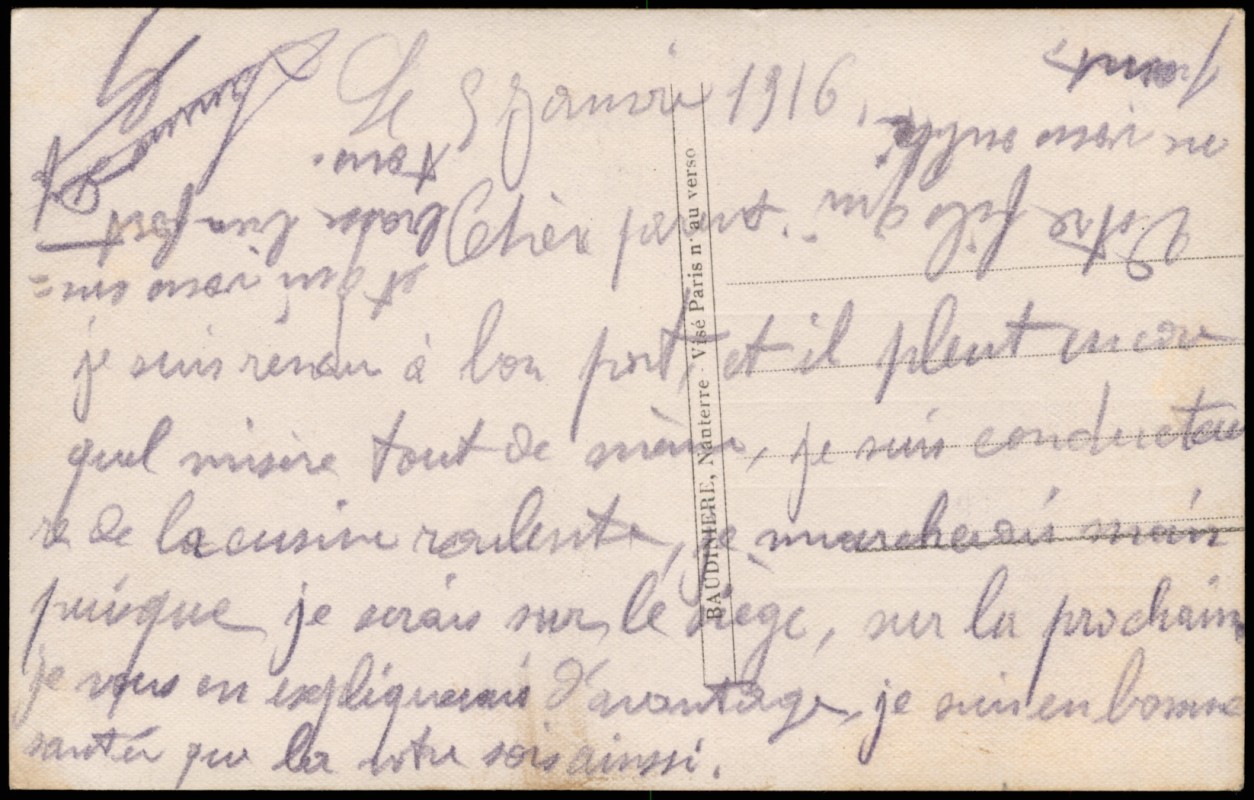 Le 5 Janvie 1916,
Cher parent.
je suis rendu à bon port, et il pleut encore
quel misère tout de même, je suis conducteu
r de la cuisine roulente, je marcherais moin
puisque je serais sur le siège, sur la prochain
je vous en expliquerais d'avantage, je suis en bonne
santér que la votre sois ainsi.
Votre fils qui
ne vous oublie
et qui vous em=
brasse bien fort
BAUDINIERE, Nanterre - Visé Paris n° au verso